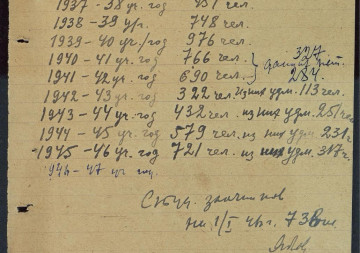 1937 – 38 уч. год 451 чел.
1938 – 39 уч. 748 чел.
1939 – 40 уч. год 976 чел.
1940 – 41 уч. год 766 чел. 327
1941 – 42 уч. год 690 чел. 284.
1942 – 43 уч. год 322 чел. из них удм. 113 чел.
1943 – 44 уч. год 432 чел. из них удм. 251 чел
1944 – 45 уч. год 579 чел. из них удм. 231
1945 – 46 уч. год 721 чел. из них удм. 317 г.
1946 – 47 уч год.
заочников
на 1/I 46 г. 738